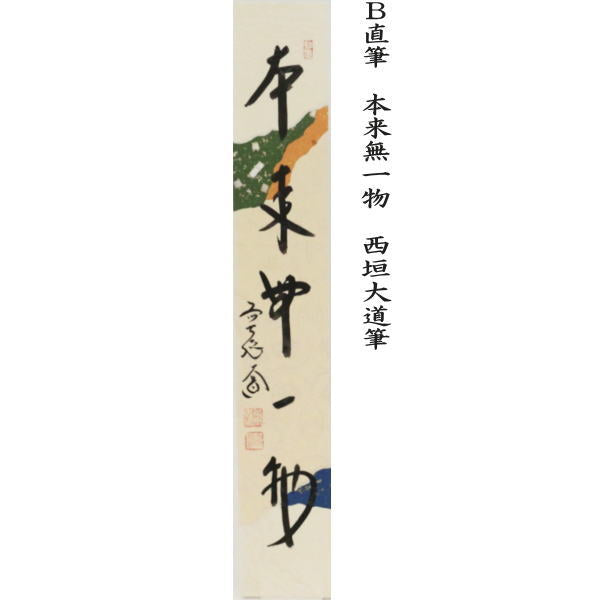 B直筆　本来無一物　西垣大道筆
本来無一物